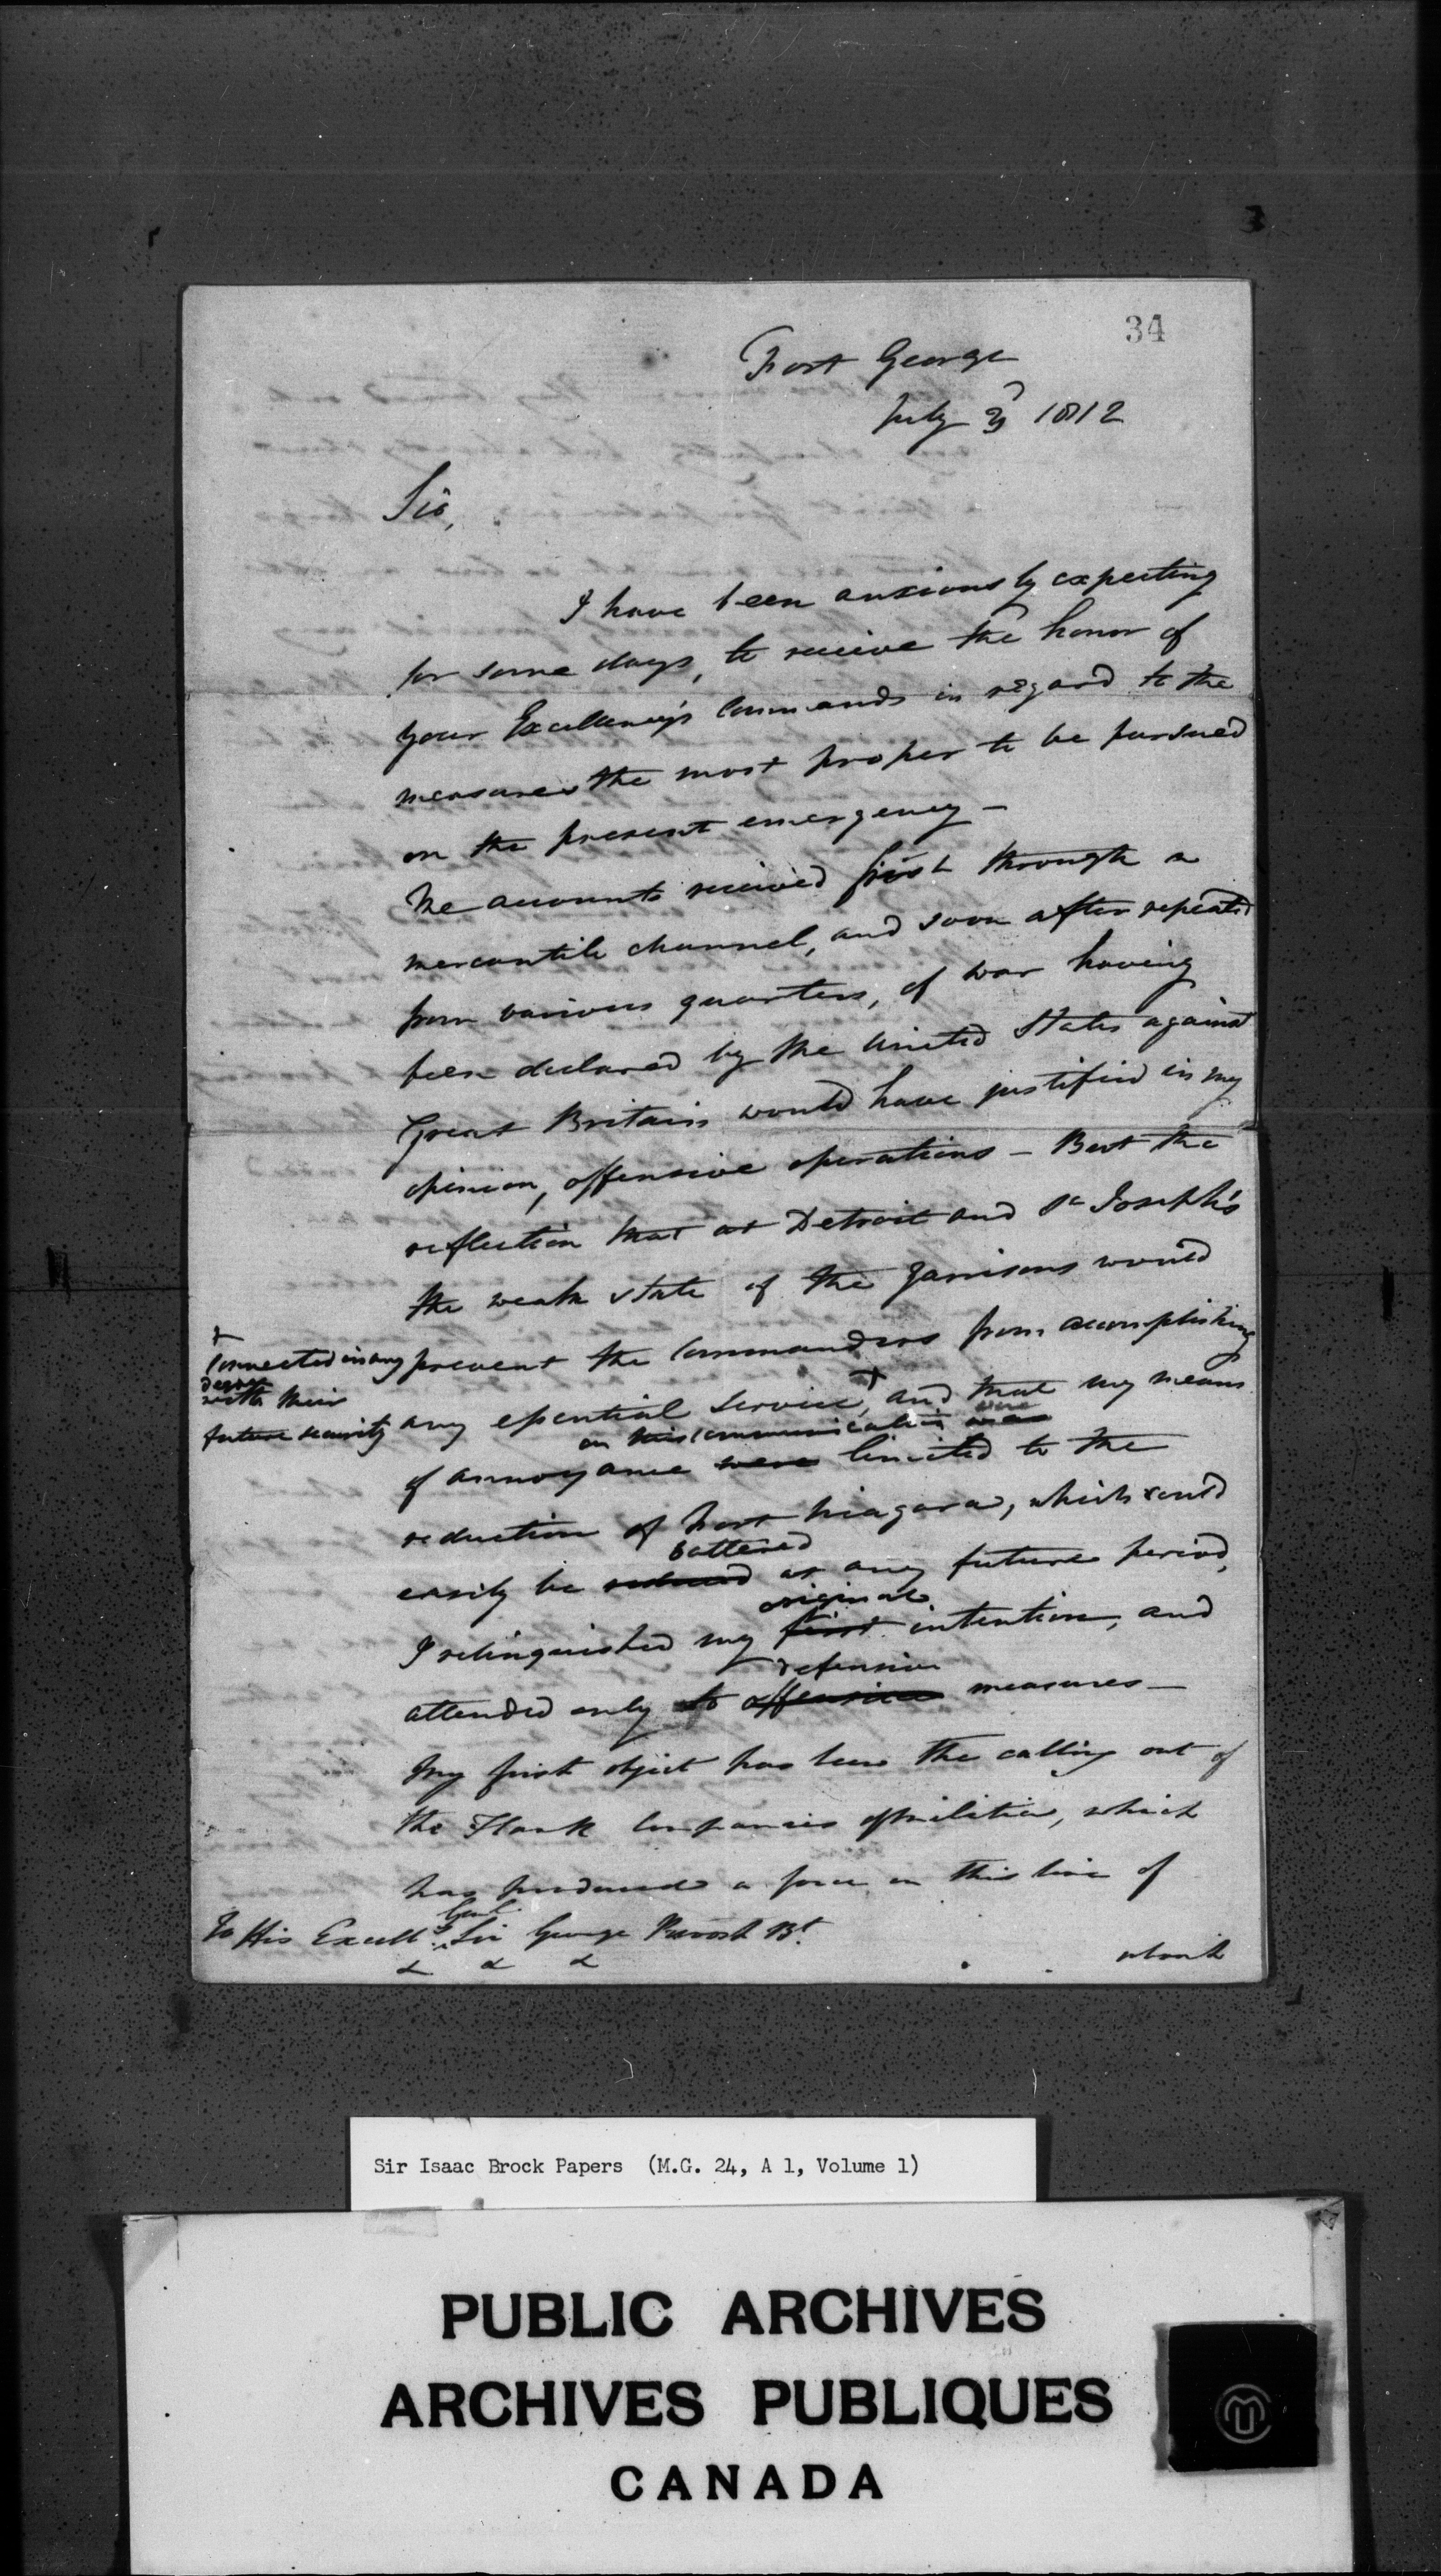 34
Fort George
July 3d 1812
Sir,
I have been anxiously expecting
for some days, to receive the honor of
your Excellency's Commands in regard to the
measures the most proper to be pursued
on the present emergency —
The accounts received first through a
mercantile channel, and soon after repeated
from various quarters, of war having
been declared by the United States against
Great Britain would have justified in my
opinion, offensive operations — But the
reflection that at Detroit and St Joseph's
the weak state of the garrisons would
prevent the Commanders from accomplishing
+
connected in any
degree
with their
future security
any essential service, + and that my means
on this communication were
of annoyance were limited to the
reduction of Fort Niagara, which could
battered
easily be reduced at any future period,
original
I relinquished my first intention, and
defensive
attended only to offensive measures —
My first object has been the calling out of
the Flank Companies of Militia, which
has produced a force on this line of
Genl
To His Excelly Sir George Prevost Bt.
& & &
about
Sir Isaac Brock Papers (M.G. 24, A 1, Volume 1)
PUBLIC ARCHIVES
ARCHIVES PUBLIQUES
CANADA